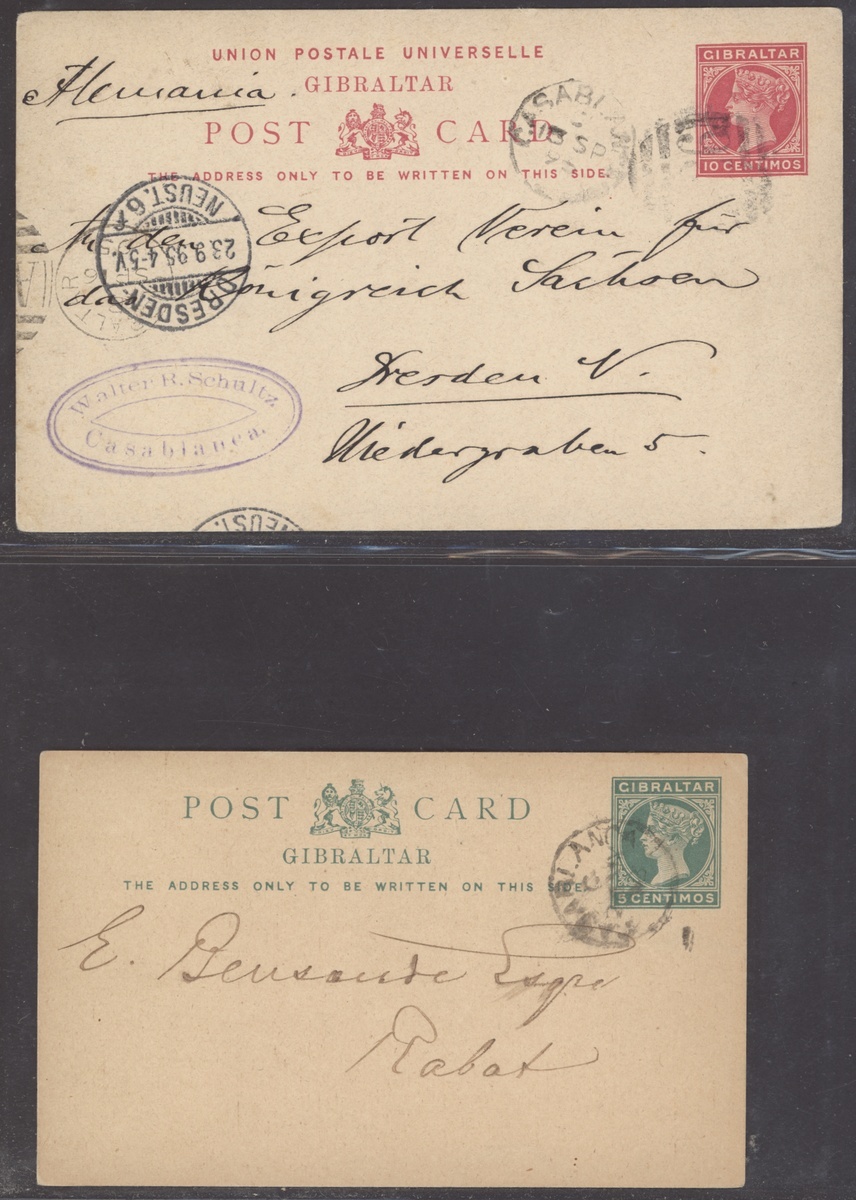 UNION POSTALE UNIVERSELLE
Alemania.
GIBRALTAR
POST CARD
THE ADDRESS ONLY TO BE WRITTEN ON THIS SIDE.
GIBRALTAR
10 CENTIMOS
CASABLAN
SP
An den Export Verein für
das Königreich Sachsen
Dresden N.
Niedergraben 5.
NEUST. 6
23.9.95.4-5V.
DRESDEN
Walter R. Schultz
Casablanca.
NEUST.
POST CARD
GIBRALTAR
THE ADDRESS ONLY TO BE WRITTEN ON THIS SIDE.
GIBRALTAR
5 CENTIMOS
CASABLANCA
E. Bensaude Esqre
Rabat